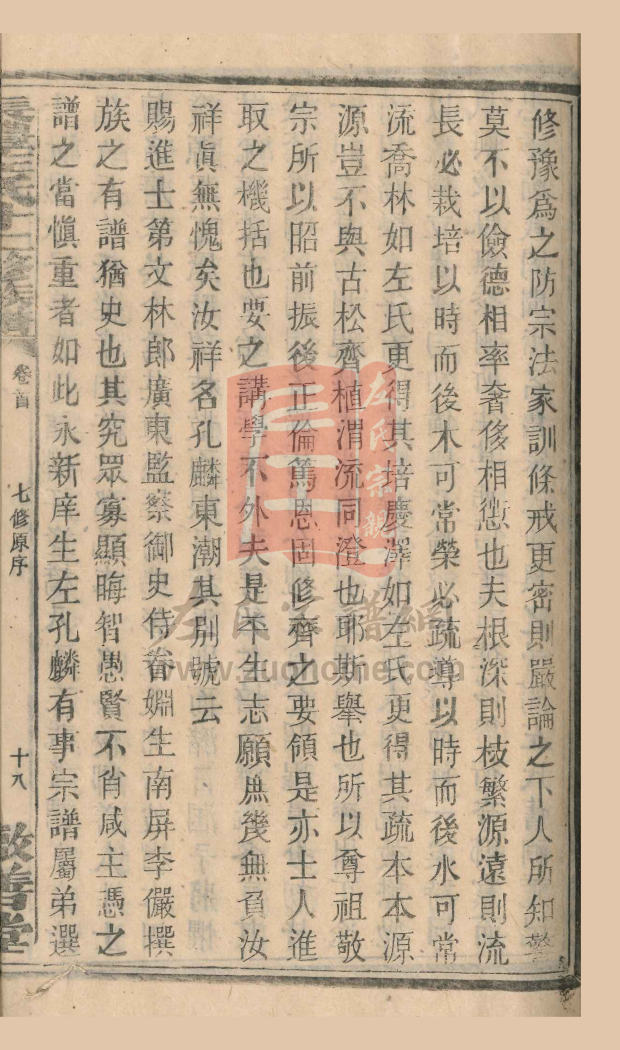 修豫爲之防宗法家訓條戒更密則嚴論之下人所知警
莫不以儉德相率奢侈相愆也夫根深則枝繁源遠則流
長必栽培以時而後木可常榮必疏導以時而後水可常
流喬林如左氏更得其培慶澤如左氏更得其疏本本源
源豈不與古松齊植渭流同澄也耶斯舉也所以尊祖敬
宗所以昭前振後正倫篤恩固修齊之要領是亦士人進
取之機括也要之講學不外夫是平生志願庶幾無負汝
祥眞無愧矣汝祥名孔麟東潮其別號云
賜進士第文林郎廣東監察御史侍眷婣生南屏李儼撰
族之有譜猶史也其究眾寡顯晦智愚賢不肖咸主憑之
譜之當慎重者如此永新庠生左孔麟有事宗譜屬弟選
左氏十二修族譜
卷首
七修原序
十八
敦善堂
左氏宗親
左氏宗譜網
www.zuohome.com